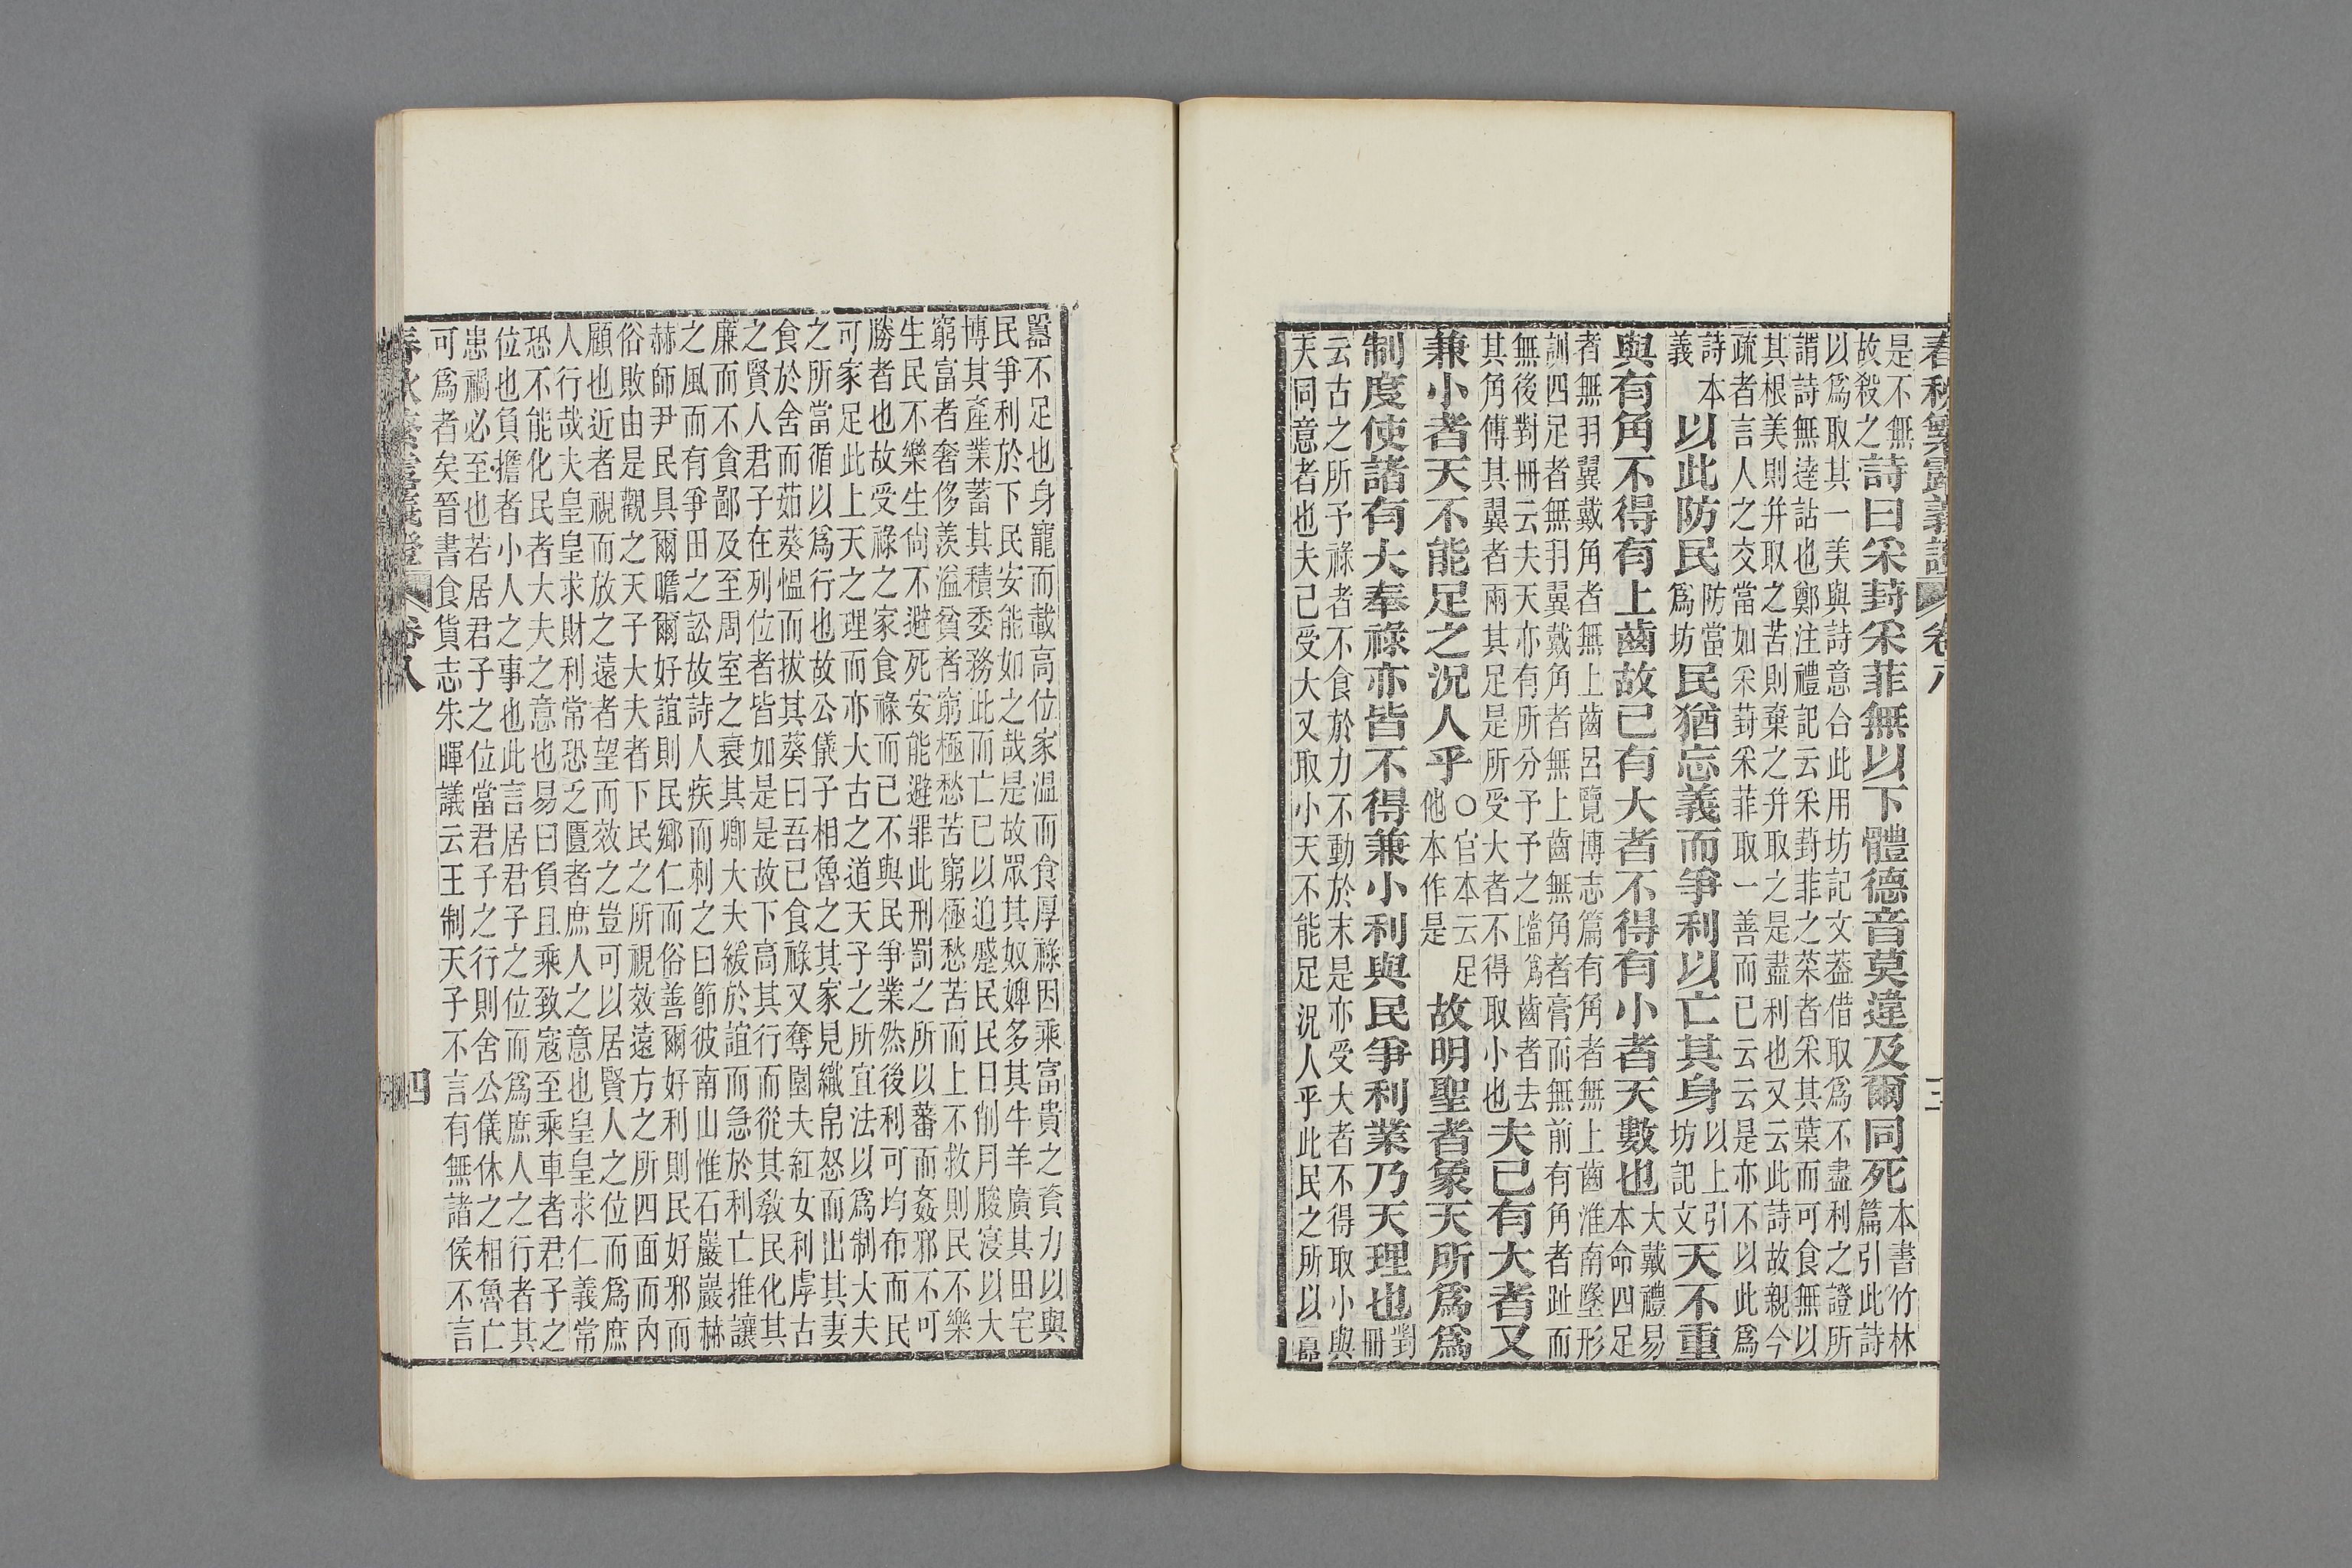 春秋繁露義證 卷八 三
是不無
故殺之
詩曰采葑采菲無以下體德音莫違及爾同死
本書竹林
篇引此詩
以爲取其一美與詩意合此用坊記文葢借取爲不盡利之證所
謂詩無達詁也鄭注禮記云采葑菲之菜者采其葉而可食無以
其根美則并取之苦則棄之并取之是盡利也又云此詩故親今
疏者言人之交當如采葑采菲取一善而已云云是亦不以此爲
詩本
義
以此防民
防當
爲坊
民猶忘義而爭利以亡其身
以上引
坊記文
天不重
與有角不得有上齒故已有大者不得有小者天數也
大戴禮易
本命四足
者無羽翼戴角者無上齒呂覽博志篇有角者無上齒淮南墬形
訓四足者無羽翼戴角者無上齒無角者膏而無前有角者趾而
無後對冊云夫天亦有所分予予之上當爲齒者去
其角傅其翼者兩其足是所受大者不得取小也
夫已有大者又
兼小者天不能足之況人乎
○官本云足
他本作是
故明聖者象天所爲爲
制度使諸有大奉祿亦皆不得兼小利與民爭利業乃天理也
對
冊
云古之所予祿者不食於力不動於末是亦受大者不得取小與
天同意者也夫已受大又取小天不能足況人乎此民之所以囂
囂不足也身寵而載高位家温而食厚祿因乘富貴之資力以與
民爭利於下民安能如之哉是故眾其奴婢多其牛羊廣其田宅
博其產業蓄其積委務此而亡已以迫蹙民民日削月朘寖以大
窮富者奢侈羨溢貧者窮極愁苦窮極愁苦而上不救則民不樂
生民不樂生尙不避死安能避罪此刑罰之所以蕃而姦邪不可
勝者也故受祿之家食祿而已不與民爭業然後利可均布而民
可家足此上天之理而亦大古之道天子之所宜法以爲制大夫
之所當循以爲行也故公儀子相魯之其家見織帛怒而出其妻
食於舍而茹葵愠而拔其葵曰吾已食祿又奪園夫紅女利虖古
之賢人君子在列位者皆如是是故下高其行而從其敎民化其
廉而不貪鄙及至周室之衰其卿大夫緩於誼而急於利亡推讓
之風而有爭田之訟故詩人疾而刺之曰節彼南山惟石巖巖赫
赫師尹民具爾瞻爾好誼則民鄉仁而俗善爾好利則民好邪而
俗敗由是觀之天子大夫者下民之所視效遠方之所四面而内
顧也近者視而放之遠者望而效之豈可以居賢人之位而爲庶
人行哉夫皇皇求財利常恐乏匱者庶人之意也皇皇求仁義常
恐不能化民者大夫之意也易曰負且乘致寇至乘車者君子之
位也負擔者小人之事也此言居君子之位而爲庶人之行者其
患禍必至也若居君子之位當君子之行則舍公儀休之相魯亡
可爲者矣晉書食貨志朱暉議云王制天子不言有無諸侯不言
春秋繁露義證 卷八 四